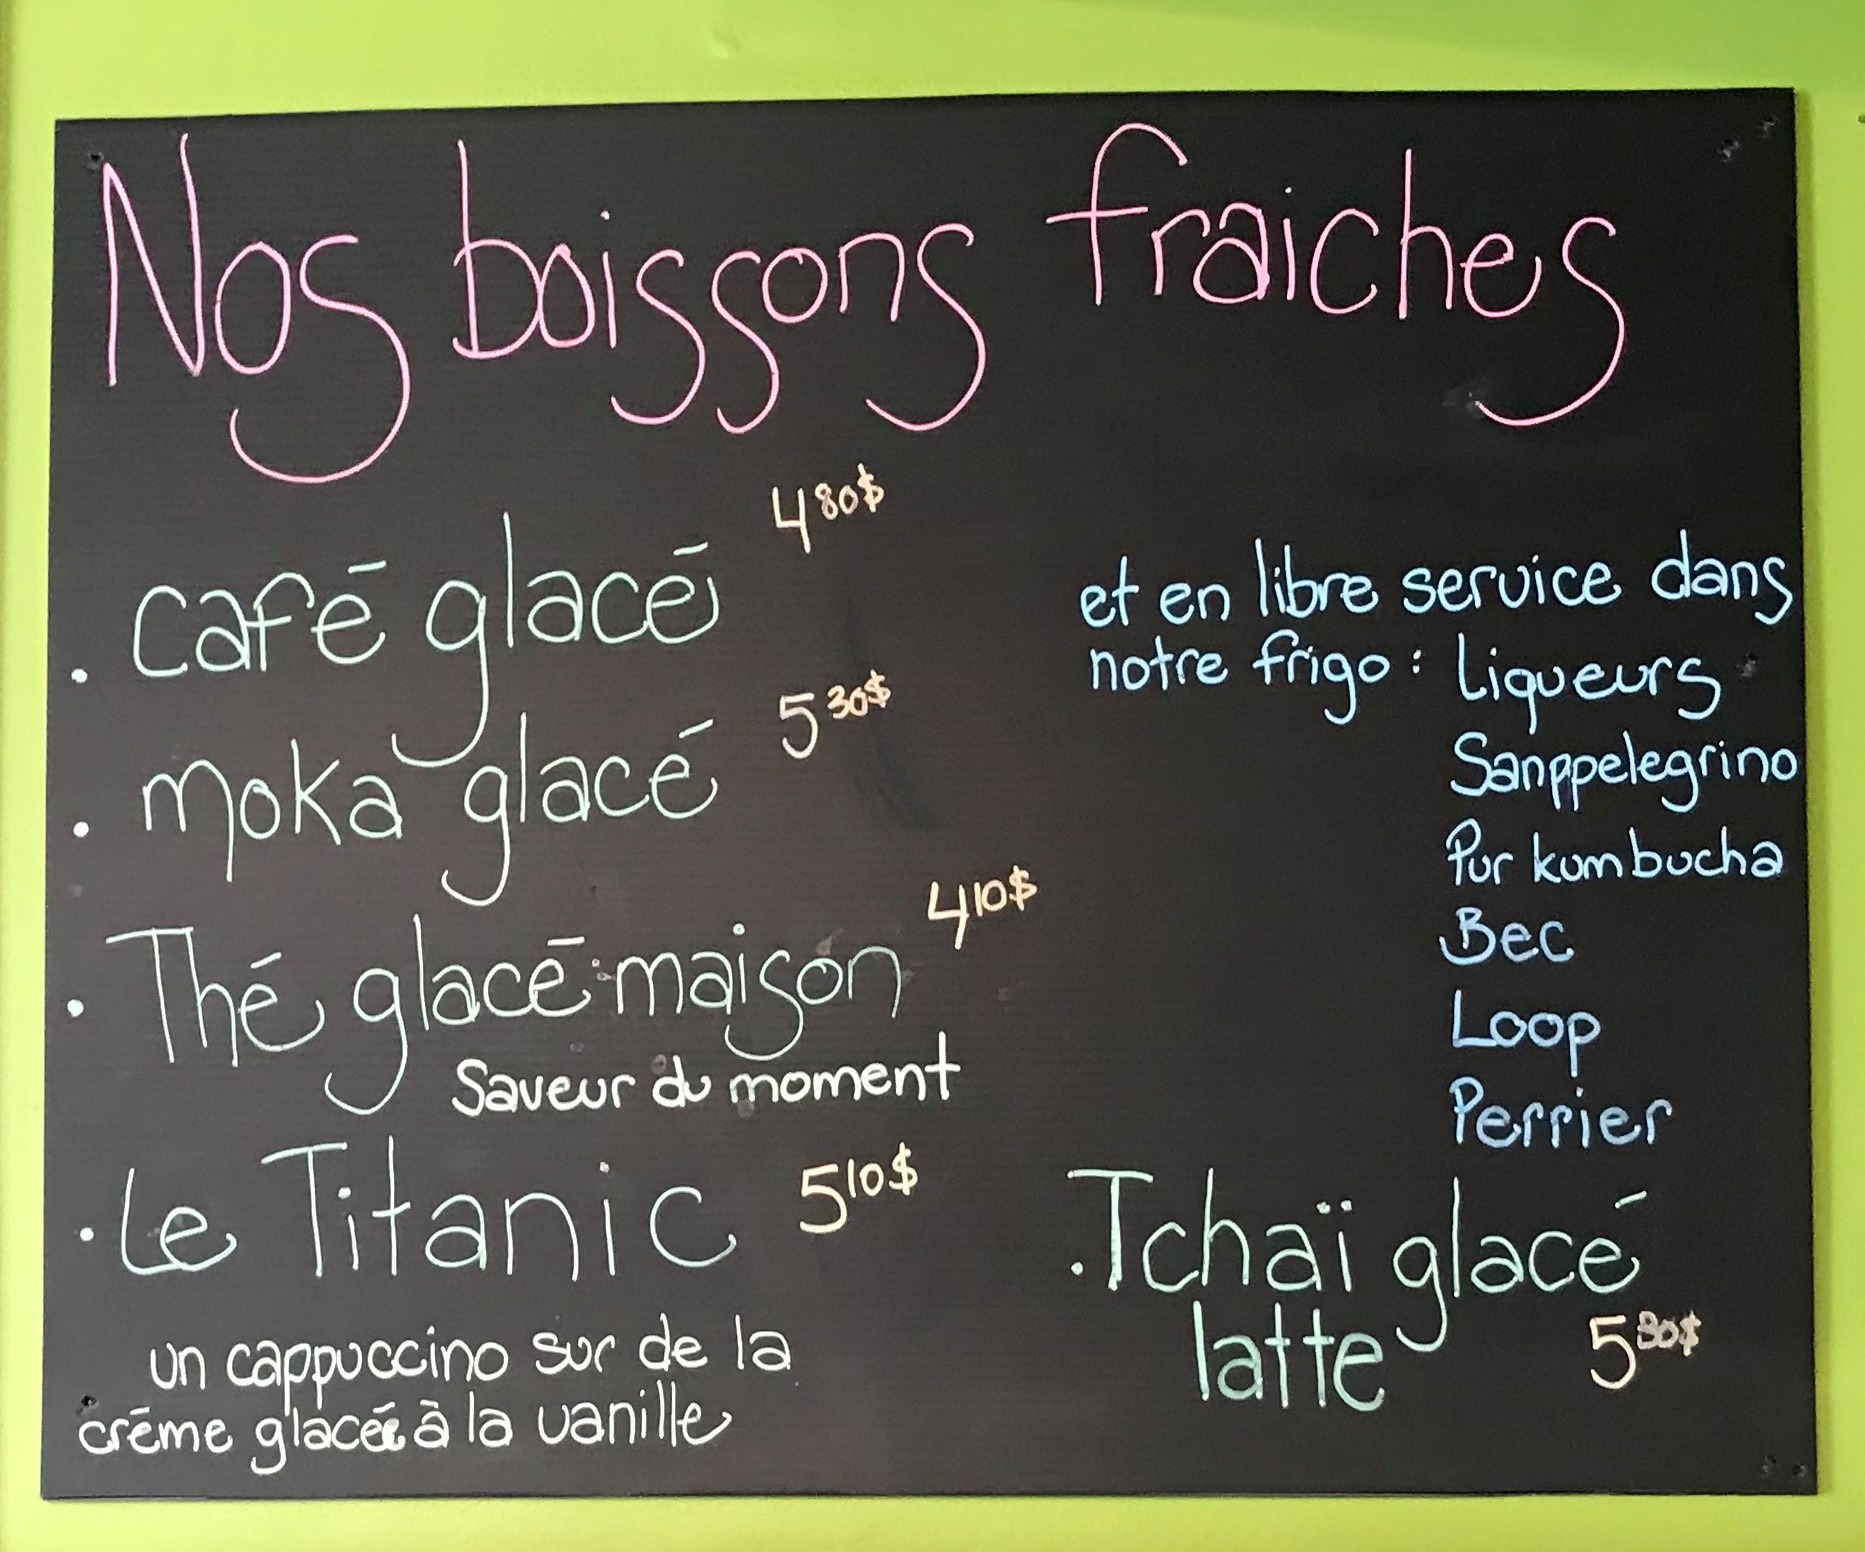 Nos boissons fraiches
. café glacé 4 80$
. moka glacé 5 30$
. Thé glacé maison 4 10$
Saveur du moment
. Le Titanic 5 10$
un cappuccino sur de la
crème glacée à la vanille
et en libre service dans
notre frigo : Liqueurs
Sanppelegrino
Pur kumbucha
Bec
Loop
Perrier
. Tchaï glacé
latte 5 80$